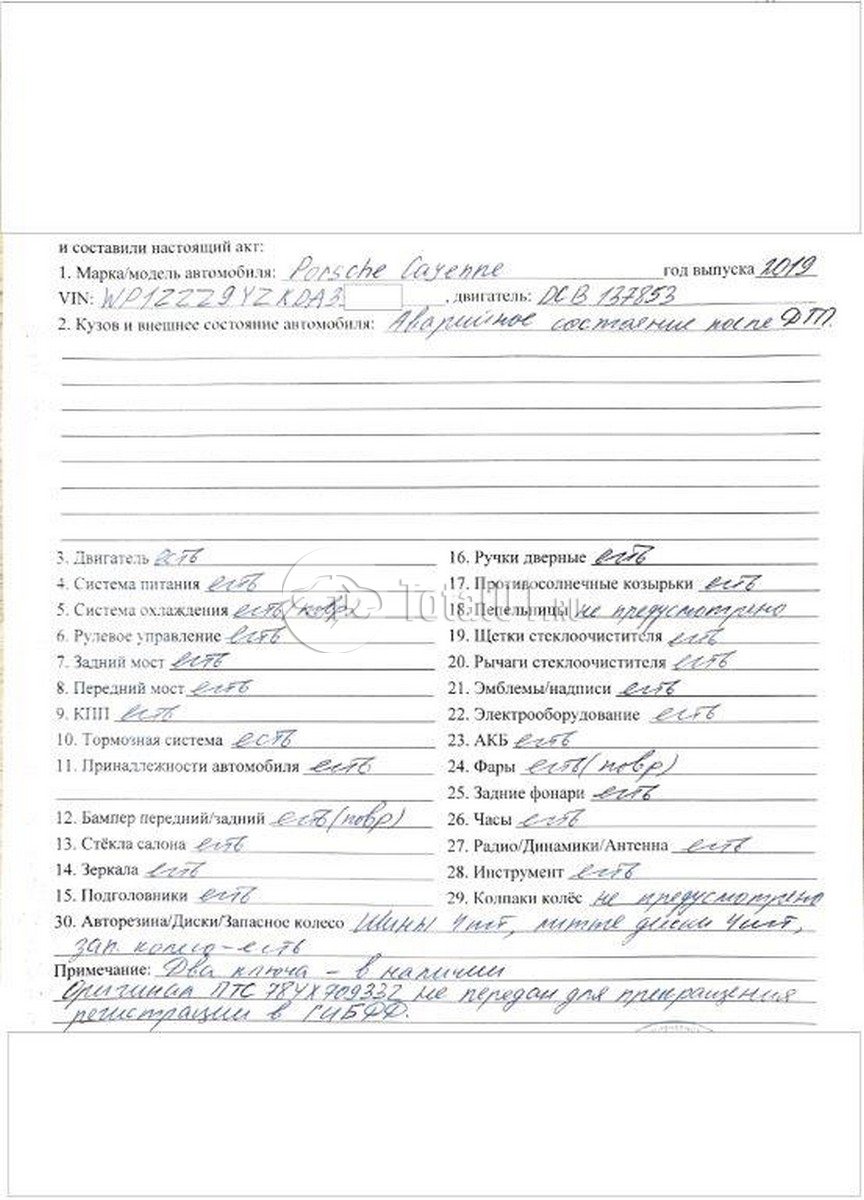 и составили настоящий акт:
1. Марка/модель автомобиля: Porsche Cayenne год выпуска 2019
VIN: WP1ZZZ9YZKDA3 , двигатель: DCB 137853
2. Кузов и внешнее состояние автомобиля: Аварийное состояние после ДТП.
3. Двигатель есть
4. Система питания есть
5. Система охлаждения есть (повр)
6. Рулевое управление есть
7. Задний мост есть
8. Передний мост есть
9. КПП есть
10. Тормозная система есть
11. Принадлежности автомобиля есть
12. Бампер передний/задний есть (повр)
13. Стёкла салона есть
14. Зеркала есть
15. Подголовники есть
16. Ручки дверные есть
17. Противосолнечные козырьки есть
18. Пепельницы не предусмотрено
19. Щетки стеклоочистителя есть
20. Рычаги стеклоочистителя есть
21. Эмблемы/надписи есть
22. Электрооборудование есть
23. АКБ есть
24. Фары есть (повр)
25. Задние фонари есть
26. Часы есть
27. Радио/Динамики/Антенна есть
28. Инструмент есть
29. Колпаки колёс не предусмотрено
30. Авторезина/Диски/Запасное колесо Шины 4шт, литые диски 4шт,
зап. колесо - есть
Примечание: Два ключа - в наличии
Оригинал ПТС 78УХ709332 не передан для прекращения
регистрации в ГИБДД.
Total01.ru